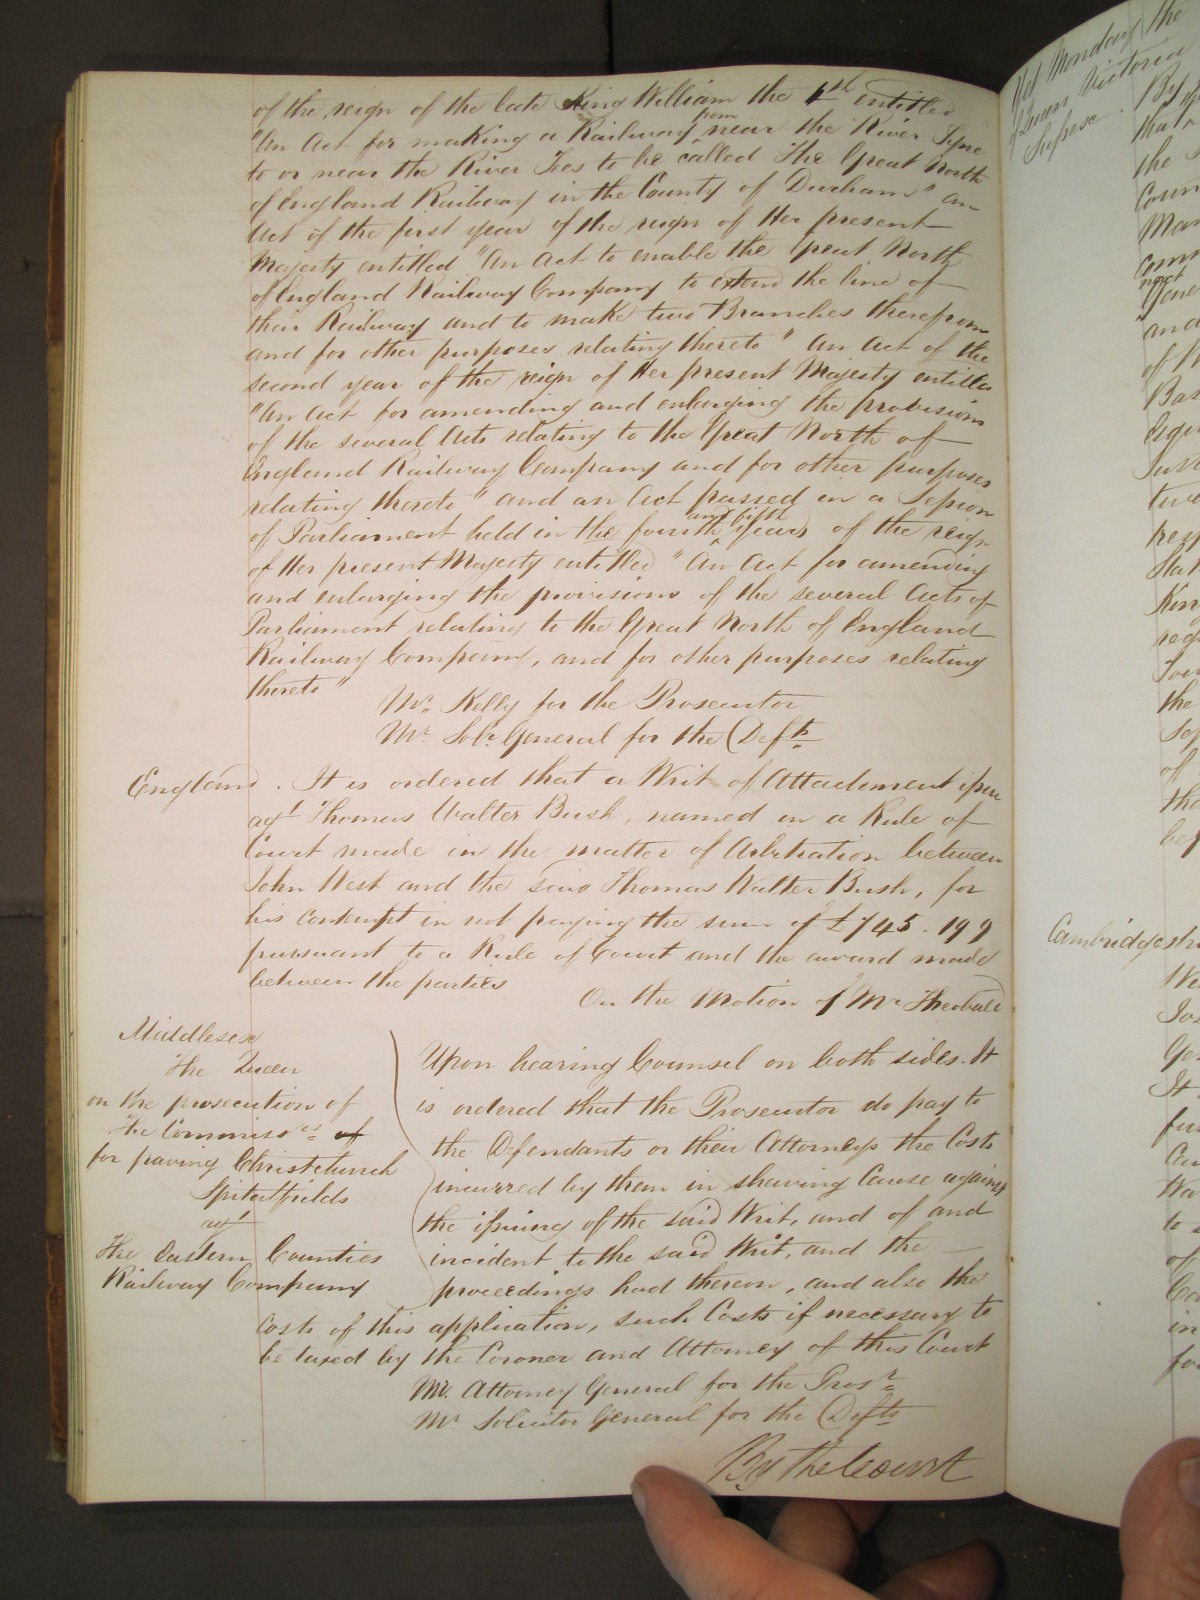 of the reign of the late King William the 4th entitled
"An Act for making a Railway from near the River Tyne
to or near the River Tees to be called The Great North
of England Railway in the County of Durham" an
Act of the first year of the reign of Her present
Majesty entitled "An Act to enable the Great North
of England Railway Company to extend the line of
their Railway and to make two Branches therefrom
and for other purposes relating thereto" an Act of the
second year of the reign of Her present Majesty entitled
"An Act for amending and enlarging the provisions
of the several Acts relating to the Great North of
England Railway Company and for other purposes
relating thereto" and an Act passed in a Session
of Parliament held in the fourth and fifth years of the reign
of Her present Majesty entitled "An Act for amending
and enlarging the provisions of the several Acts of
Parliament relating to the Great North of England
Railway Company, and for other purposes relating
thereto"
Mr. Kelly for the Prosecutor
Mr. Solr. General for the Defts
England. It is ordered that a Writ of Attachment issue
agt Thomas Walter Bush, named in a Rule of
Court made in the matter of Arbitration between
John West and the said Thomas Walter Bush, for
his contempt in not paying the sum of £745.19 9
pursuant to a Rule of Court and the award made
between the parties
On the Motion of Mr Theobald
Middlesex
The Queen
on the prosecution of
the Commissres of
for paving Christchurch
Spitalfields
agt
The Eastern Counties
Railway Company
Upon hearing Counsel on both sides. It
is ordered that the Prosecutor do pay to
the Defendants or their Attorneys the Costs
incurred by them in shewing Cause against
the issuing of the said Writ, and of and
incident to the said Writ, and the
proceedings had thereon, and also the
costs of this application, such Costs if necessary to
be taxed by the Coroner and Attorney of this Court
Mr. Attorney General for the Prosr
Mr. Solicitor General for the Defts
By the Court
Monday the
Victoria
By
that
the
not
and
of
the
of
Cambridgeshi
It
to
of
in